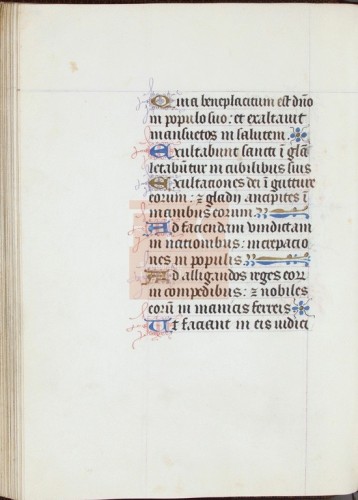 Quia beneplacitum est dño
in populo suo: et exaltauit
mansuetos in salutem.
Exultabunt sancti ī glā
letabūtur in cubilibus suis
Exultationes dei ī gutture
eorum: ⁊ gladii ancipites ī
manibus eorum.
Ad faciendam vindictam
in nationibus: increpacio
nes in populis.
Ad alligandos reges eorr
in compedibus: ⁊ nobiles
eorū in manicis ferreis
Ut faciant in eis iudici